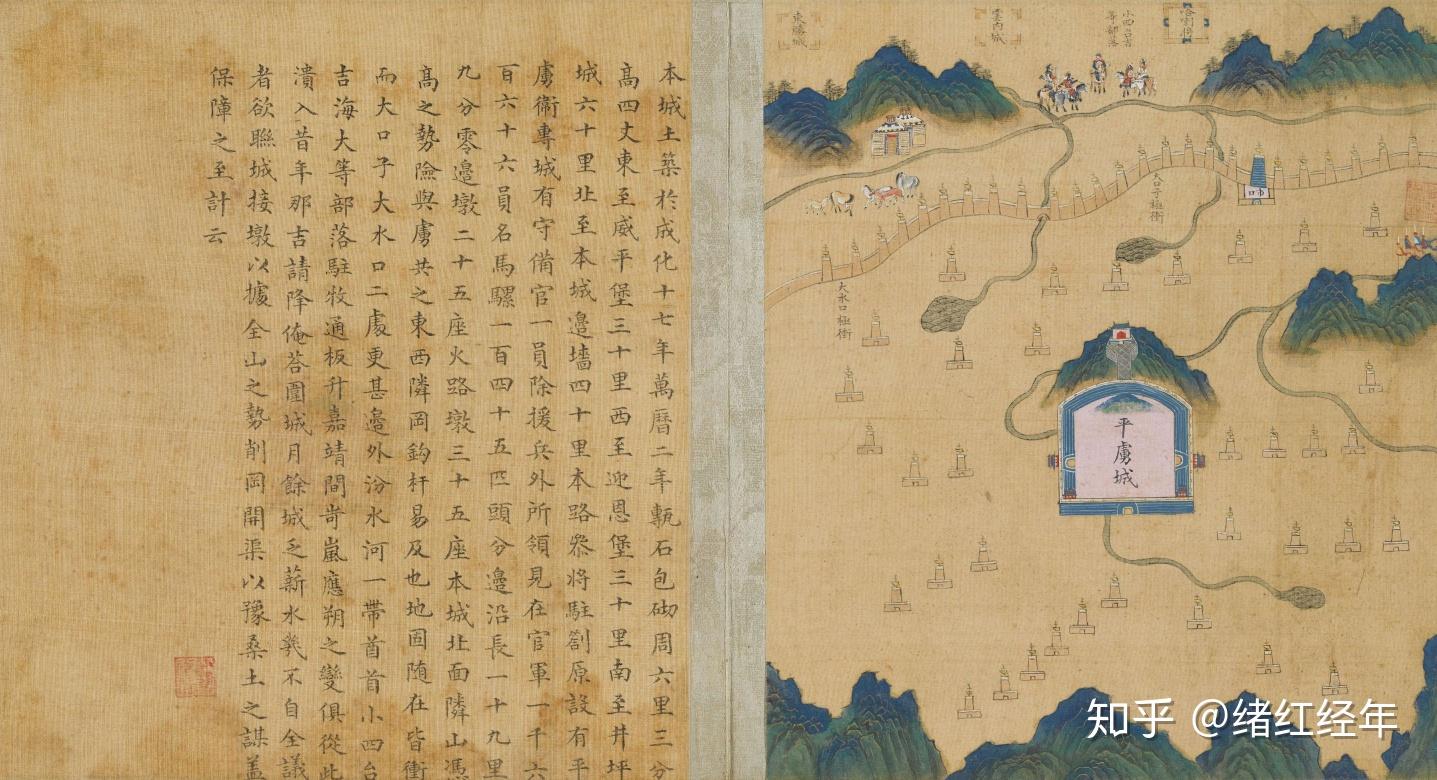 本城土築於成化十七年萬曆二年甎石包砌周六里三分
高四丈東至威平堡三十里西至迎恩堡三十里南至井坪
城六十里北至本城邊墻四十里本路叅將駐劄原設有平
虜衛專城有守備官一員除援兵外所領見在官軍一千六
百六十六員名馬騾一百四十五匹頭分邊沿長一十九里
九分零邊墩二十五座火路墩三十五座本城北面隣山憑
高之勢險與虜共之東西隣岡鈎杆易及也地固隨在皆衝
而大口子大水口二處更甚邊外汾水河一帶酋首小四台
吉海大等部落駐牧通板升嘉靖間岢嵐應朔之變俱從此
潰入昔年那吉請降俺荅圍城月餘城乏薪水幾不自全議
者欲聯城接墩以據全山之勢削岡開渠以豫桑土之謀蓋
保障之至計云
東勝城
雲內城
小四台吉
等部落
大口子極衝
市口
大水口極衝
平虜城
知乎 @绪红经年